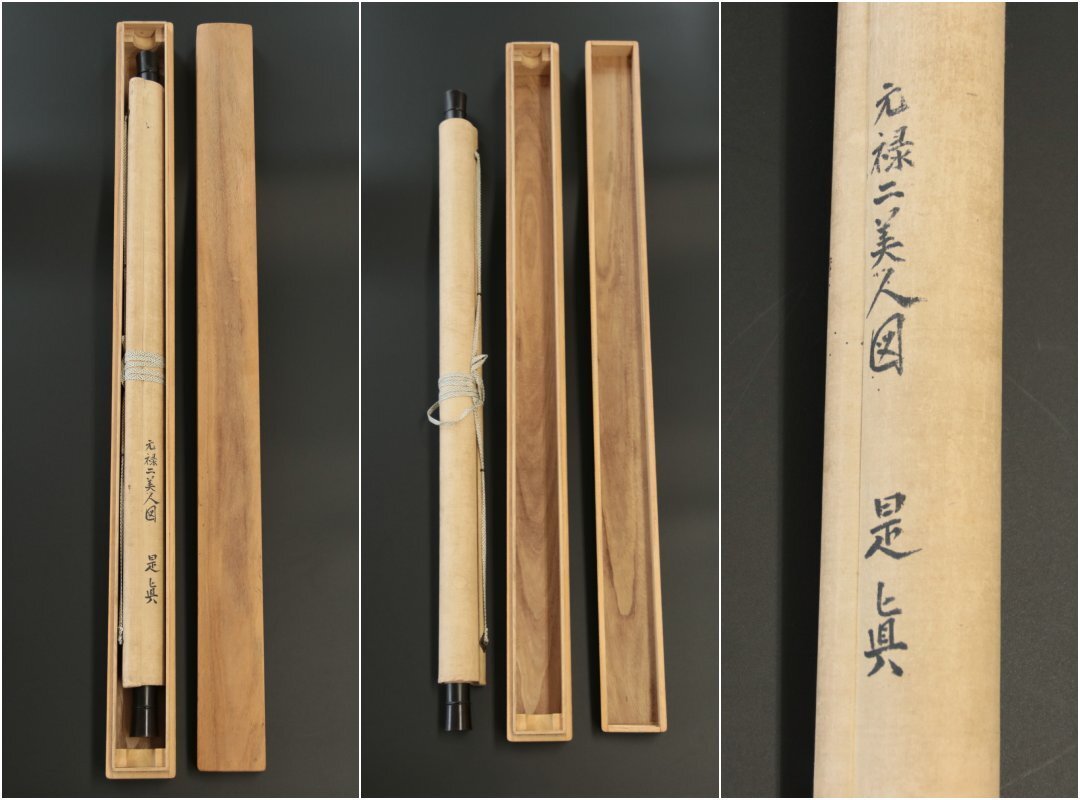 元禄二美人図 是眞
元禄二美人図 是眞